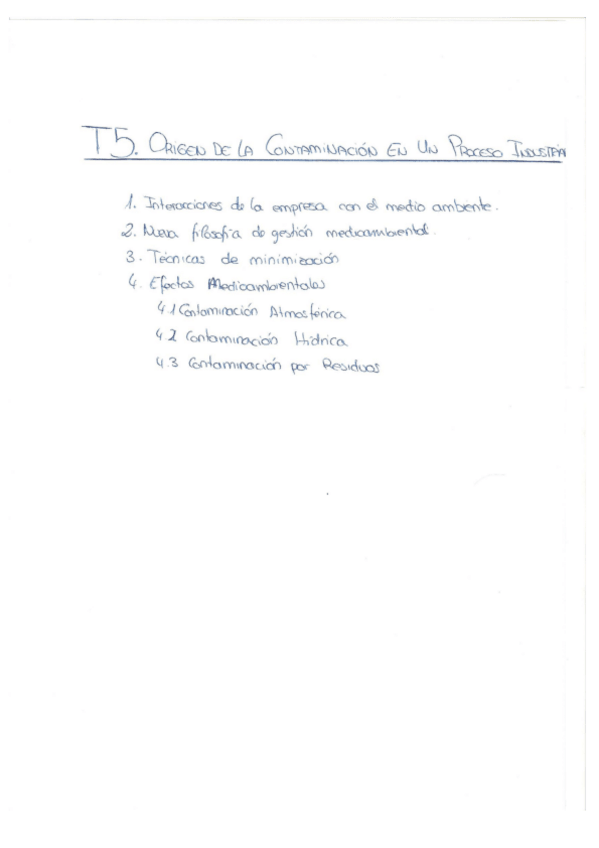 T5. ORIGEN DE LA CONTAMINACIÓN EN UN PROCESO INDUSTRIA
1. Interacciones de la empresa con el medio ambiente.
2. Nueva filosofía de gestión medioambiental.
3. Técnicas de minimización
4. Efectos Medioambientales
4.1 Contaminación Atmosférica
4.2 Contaminación Hídrica
4.3 Contaminación por Residuos